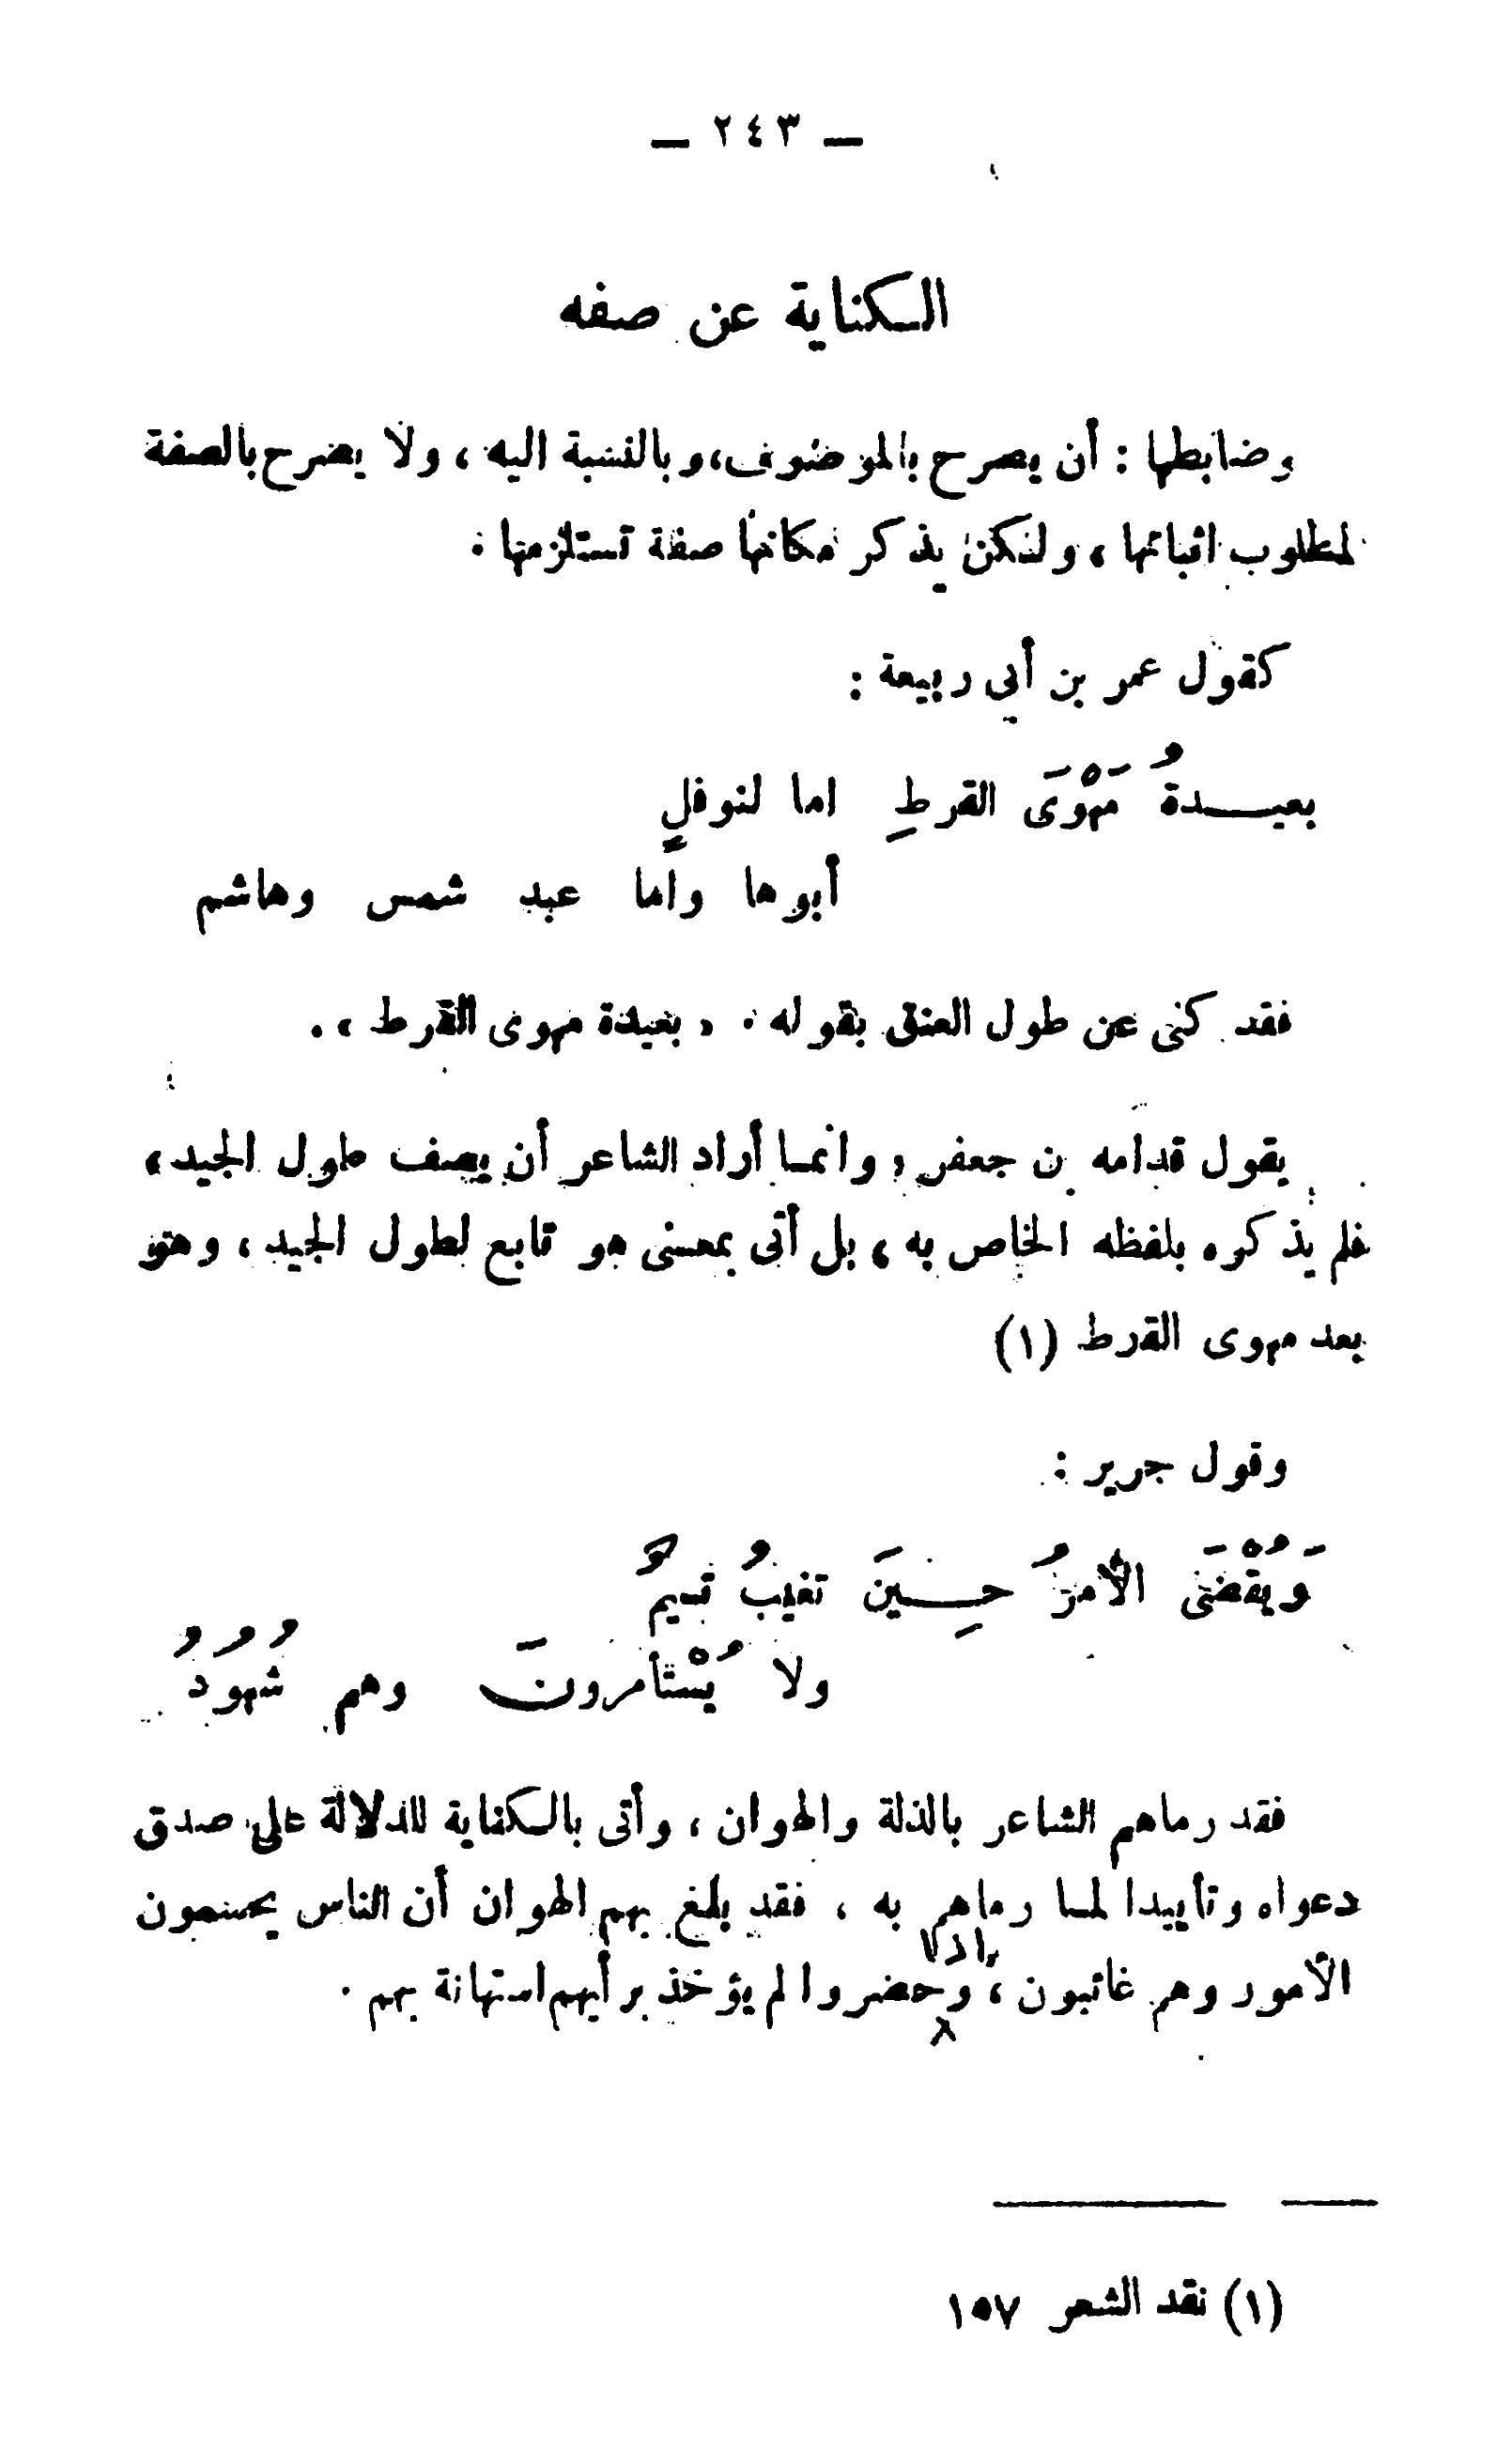 — ٢٤٣ —
الكناية عن صفه
وضابطها : أن يصرح بالموصوف، وبالنسبة اليه ، ولا يصرح بالصفة
لمطلوب اثباتها ، ولكن يذكر مكانها صفة تستلزمها .
كقول عمر بن أبي ربيعة :
بعيدةُ مَهْوَى القرطِ اما لنوفلٍ
أبوها واما عبد شمس وهاشم
فقد كنى عن طول العنق بقوله . « بعيدة مهوى القرط » .
يقول قدامه بن جعفر « وانما أراد الشاعر أن يصف طول الجيد ،
فلم يذكره بلفظه الخاص به ، بل أتى بمعنى هو تابع لطول الجيد ، وهو
بعد مهوى القرط (١)
وقول جرير :
وَيُقْضَى الأمرُ حِينَ تغيبُ تيمٌ
ولا يُسْتأمرونَ وهم شُهُودُ
فقد رماهم الشاعر بالذلة والهوان ، وأتى بالكناية للدلالة على صدق
دعواه وتأييدا لما رماهم به ، فقد بلغ بهم الهوان أن الناس يحسمون
الأمور وهم غائبون ، وإذا حضروا لم يؤخذ برأيهم استهانة بهم .
(١) نقد الشعر ١٥٧